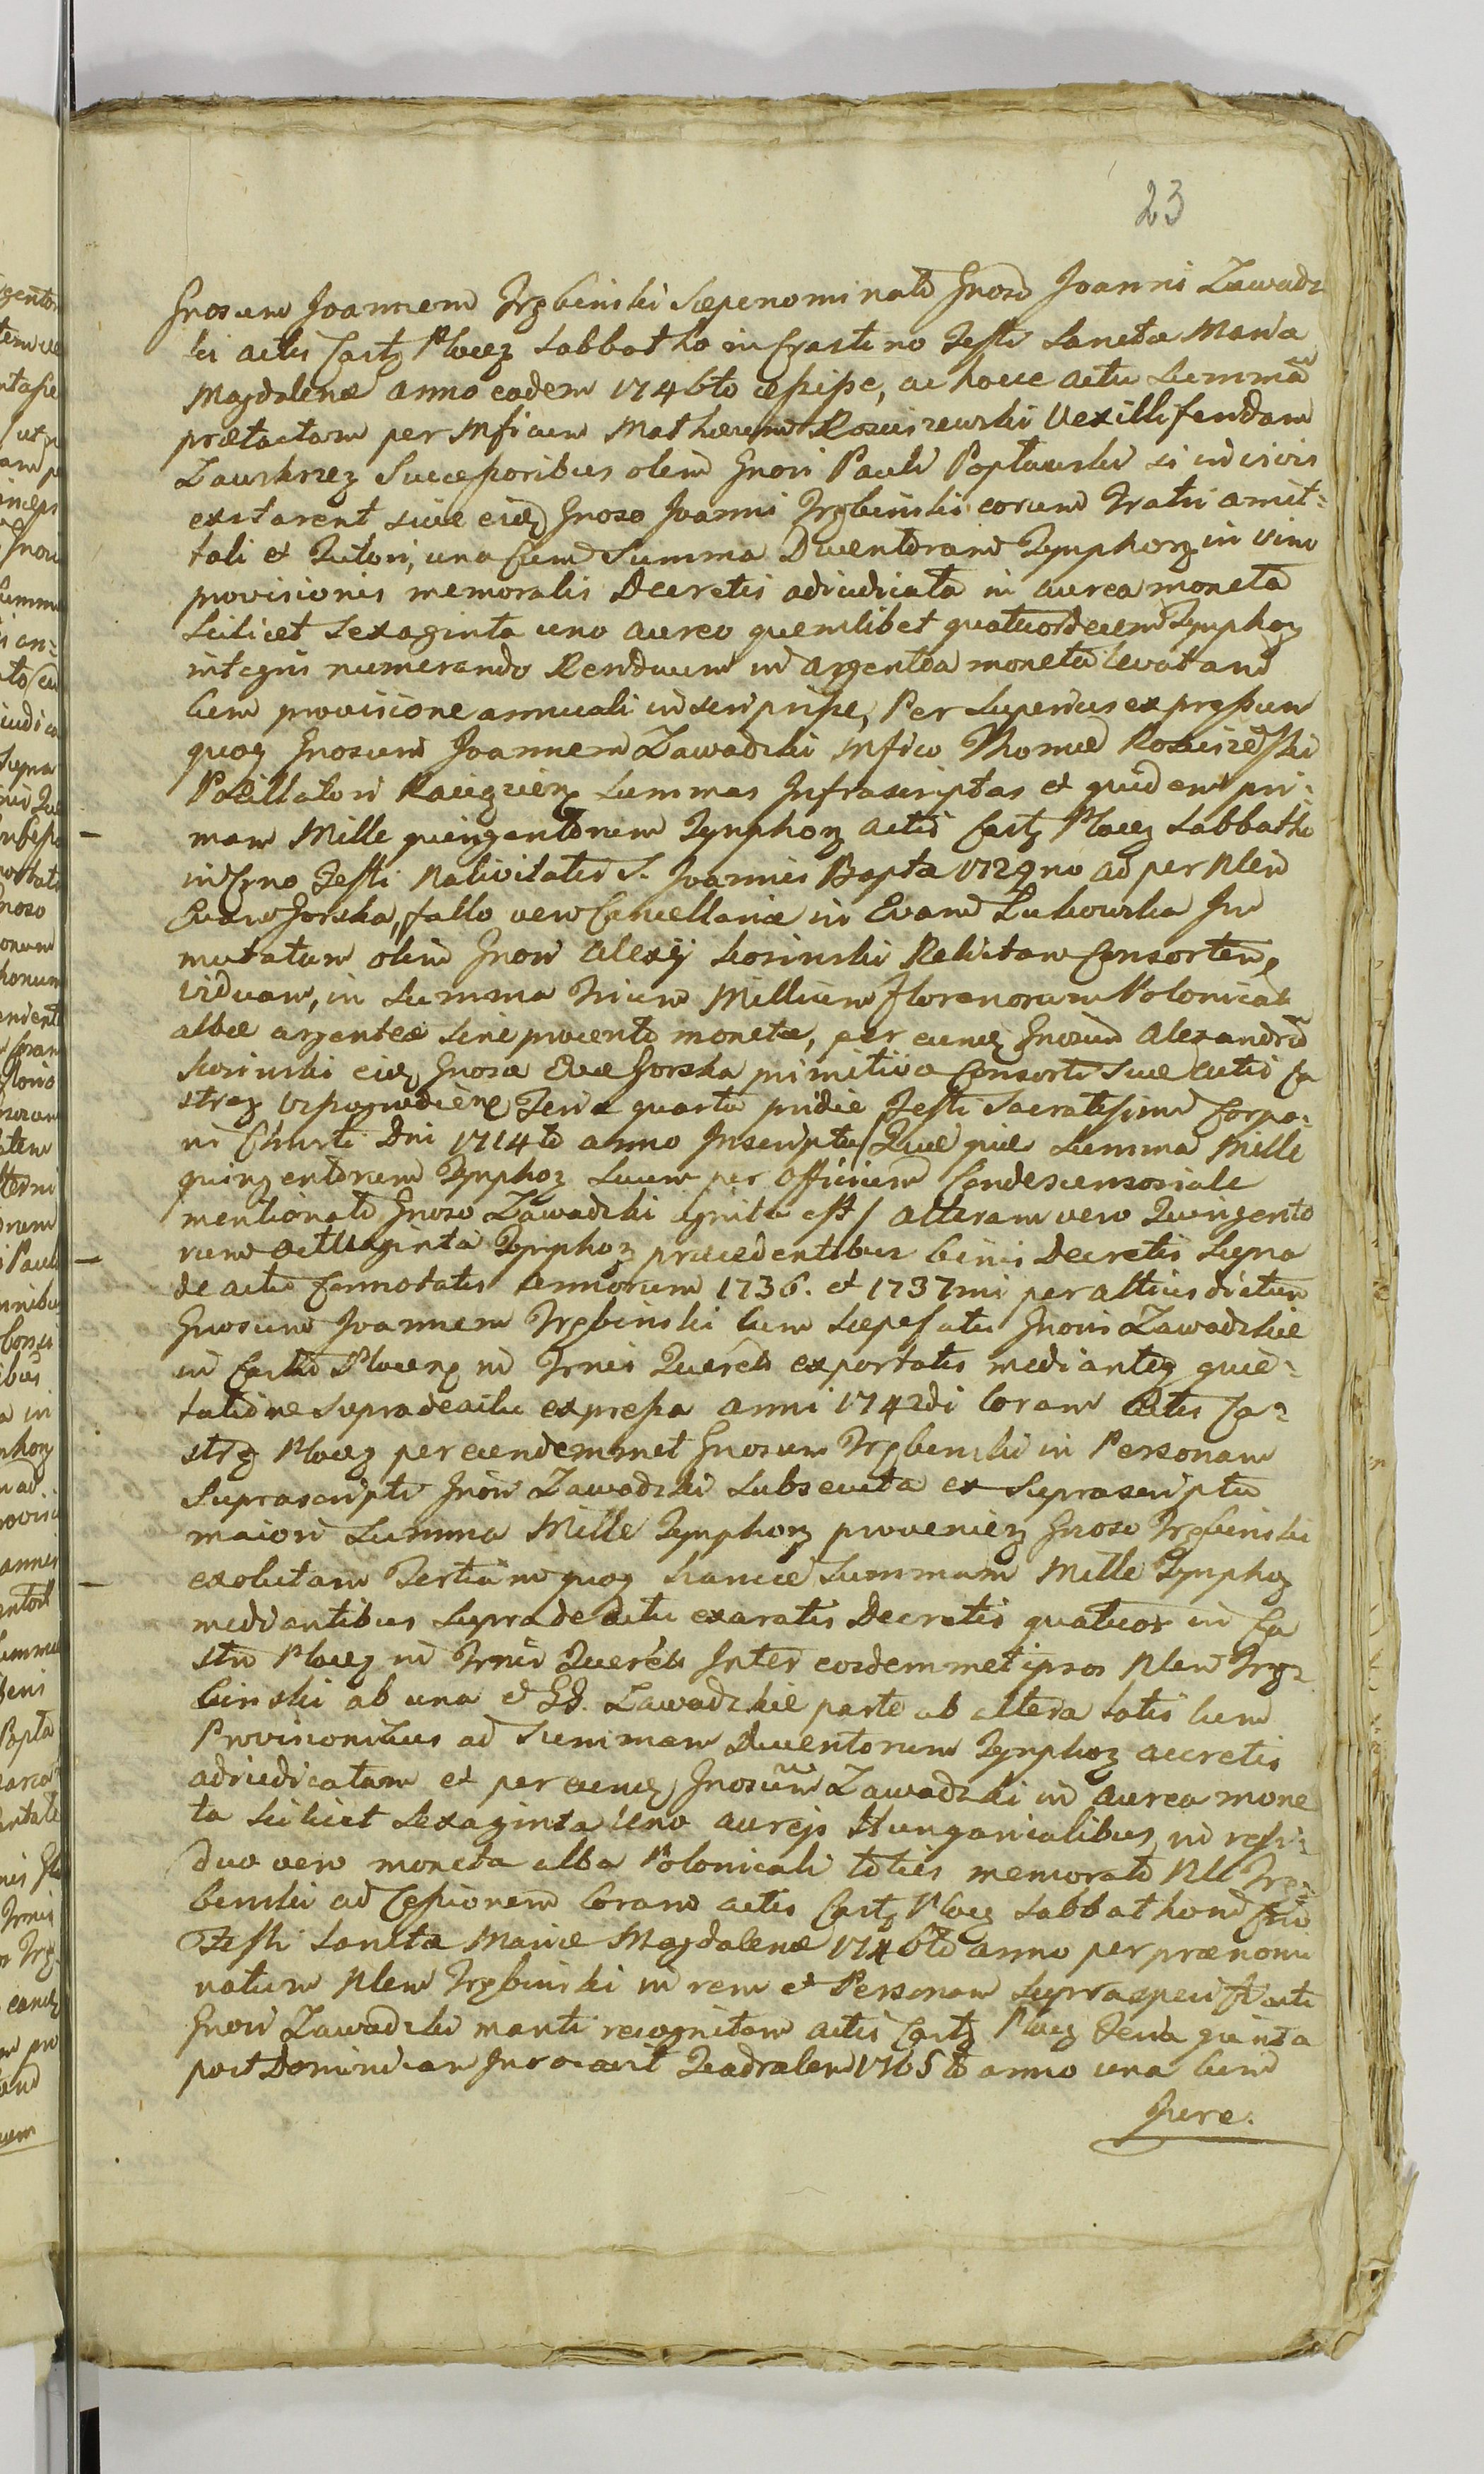 23
Gnosum Joannem Trębinski sæpenominato Gnoso Joanni Zawadz
ki actis Castr Płocz Sabbatho in Crastino Festi Sanctæ Maria
Magdalenæ anno eodem 1746to cessisse, ac hocce actu Summam
prætactam per Mficum Mathæum Rosciszewski Vexilliferidam
Zawkrzez Successoribus olim Gnosi Pauli Popławski si in vivis
extarent sive eidem Gnoso Joanni Trębinski eorum Fratri amit-
tali et Tutori, una Cum Summa Ducentorum Tynphorum in vim
provisionis memoralis Decretis adiudicata in aurea moneta
Scilicet Sexaginta uno aureo quemlibet quatuordecim Tynphoz
integris numerando Residuum in argentea moneta levatam
Cum provisione annuali inscripsisse, Per Superius expressum
quoq Gnosum Joannem Zawadzki Mfico Thomæ Rosciszewski
Pocillatori Raciązien Summas Infrascriptas et quidem pri-
mam Mille quingentorum Tynphorz actis Castr Płocz Sabbatho
in Crno Festi Nativitatis S. Joannis Bapta 1729no ad per Nlem
Evam Gorska, fallo vero Cancellariæ in Evam Lukowska Im
mutatam olim Gnosi Alexij Kosinski Relictam Consortem
viduam, in Summa Trium Millium florenorum Polonical
albæ argenteæ sine procento monetæ, per eundem Gnosum Alexandrum
Kosinski eidem Gnosæ Evæ Gorska primitivæ Consorti Suæ actis Ca
strez Wyszogrodien Feria quarta pridie Festi Sacratissimi Corpo-
ris Christi Dni 1714to anno Inscripta/ Quæ quidem Summa Mille
quingentorum Tynphoz Suum per Officium Condescensoriale
mentionato Gnoso Zawadzki agnita est/ alteram vero Quingento
rum octuaginta Tynphoz præcedentibus binis Decretis Supra
de actu Connotatis annorum 1736. et 1737mi per altius dictum
Gnosum Joannem Trębinski Cum Sæpefatis Gnosis Zawadzkie
in Castro Płocen in Trnis Querels exportatis mediante quie-
tatione Supradeactu expressa anni 1742di Coram Actis Ca-
strz Płocz per eundemmet Gnosum Trębinski in Personam
Suprascripti Gnosi Zawadzki Subsecuta ex Suprascripta
maiori Summa Mille Tynphorz provenien Gnoso Trębinski
exolutam Tertiam quoq hancce Summam Mille Tynphoz
mediantibus Supra de actu exaratis Decretis quatuor in Ca
stro Płocz in Trnis Querels Inter eosdemmet ipsos Nlem Trę-
binski ab una et GG. Zawadzkie parte ab altera latis Cum
Provisionibus ad Summam Ducentorum Tynphoz accretis
adiudicatam et per eundem Gnosum Zawadzki in aurea mone
ta scilicet Sexaginta Uno aureis Hungaricalibus in resi-
duo vero moneta alba Polonicali toties memorato Nli Trę-
binski ad Cessionem Coram actis Castr Płocz Sabbatho in Crno
Festi Sanctæ Mariæ Magdalenæ 1746to anno per prænomi
natum Nlem Trębinski in rem et Personam Supraspecificati
Gnosi Zawadzki manti recognitam actis Castr Płocz Feria quinta
post Dominicam Invocavit Quadralem 1765to anno una Cum
Jure.